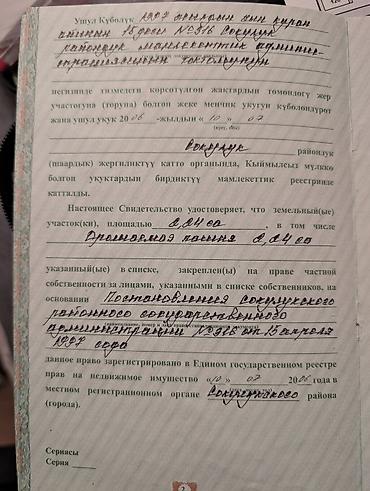 Ушул Күбөлүк 1997 жылдын он куран
айынын 15деги №316 Сокулук
райондук мамлекеттик админис-
трациясынын токтомунун
негизинде тизмеги көрсөтүлгөн жактардын төмөндөгү жер
участогуна (торуна) болгон жеке менчик укугун күбөлөндүрөт
жана ушул укук 2006 -жылдын «10» 07
Сокулук райондук
(шаардык) жергиликтүү катто органында, Кыймылсыз мүлккө
болгон укуктардын бирдиктүү мамлекеттик реестринде
катталды.
Настоящее Свидетельство удостоверяет, что земельный(ые)
участок(ки), площадью 2,24 га , в том числе
Орошаемая пашня 2,24 га
указанный(ые) в списке, закреплен(ы) на праве частной
собственности за лицами, указанными в списке собственников, на
основании Постановления Сокулукского
районного государственного
администрации №316 от 15 апреля
1997 года
данное право зарегистрировано в Едином государственном реестре
прав на недвижимое имущество «10» 07 2006 года в
местном регистрационном органе Сокулукского района
(города).
Сериясы
Серия
2